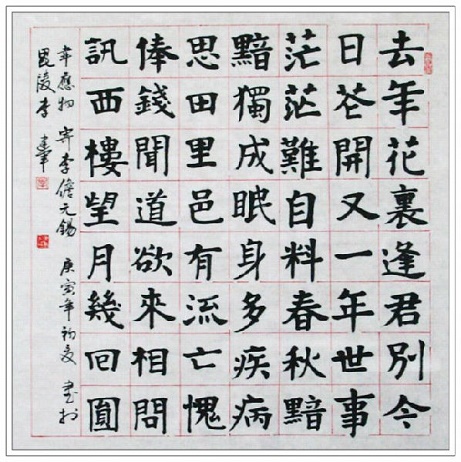 去年花裏逢君別今
日花開又一年世事
茫茫難自料春秋黯
黯獨成眠身多疾病
思田里邑有流亡愧
俸錢聞道欲來相問
訊西樓望月幾回圓
韋應物 寄李儋元錫 庚寅年初夏 書於
毘陵李